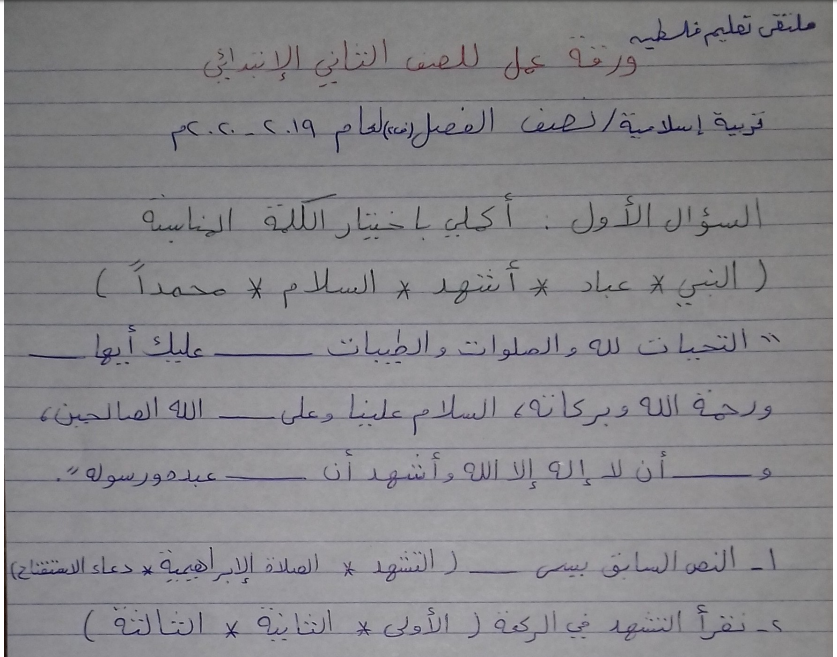 ملتقى تعليم فلسطين
ورقة عمل للصف الثاني الإبتدائي
تربية إسلامية/نصف الفصل(ف٢)لعام ٢٠١٩ - ٢٠٢٠م
السؤال الأول : أكملي باختيار الكلمة المناسبة
( النبي * عباد * أشهد * السلام * محمداً )
" التحيات لله والصلوات والطيبات ـــــ عليك أيها ـــــ
ورحمة الله وبركاته، السلام علينا وعلى ـــــ الله الصالحين،
و ـــــ أن لا إله إلا الله وأشهد أن ـــــ عبده ورسوله ".
١- النص السابق يسمى ـــــ ( التشهد * الصلاة الإبراهيمية * دعاء الاستفتاح)
٢- نقرأ التشهد في الركعة ( الأولى * الثانية * الثالثة )